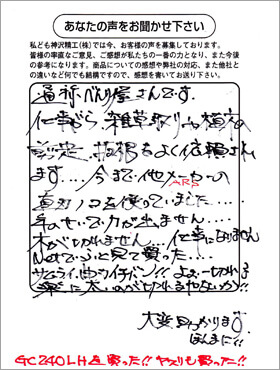 あなたの声をお聞かせ下さい
私ども神沢精工(株)では今、お客様の声を募集しております。
皆様の率直なご意見、ご感想が私たちの一番の力となり、また今後
の参考になります。商品についての感想や弊社の対応、また他社と
の違いなど何でも結構ですので、感想を書いてお送り下さい。
通称 べんり屋さんです。
仕事がら、雑草取り、植木の
剪定 をよく依頼され
ます.... 今まで他メーカーの
ARS
直刃ノコを使っていました....
年のせいで力が出ません....
木が切れません... 仕事になりません
Netでふと見て買った...
サムライ 曲刃 イチバン!! よぉー切れる
大変 助かります
ほんまに!!
GC240LHを買った!! ヤスリも買ったー!!